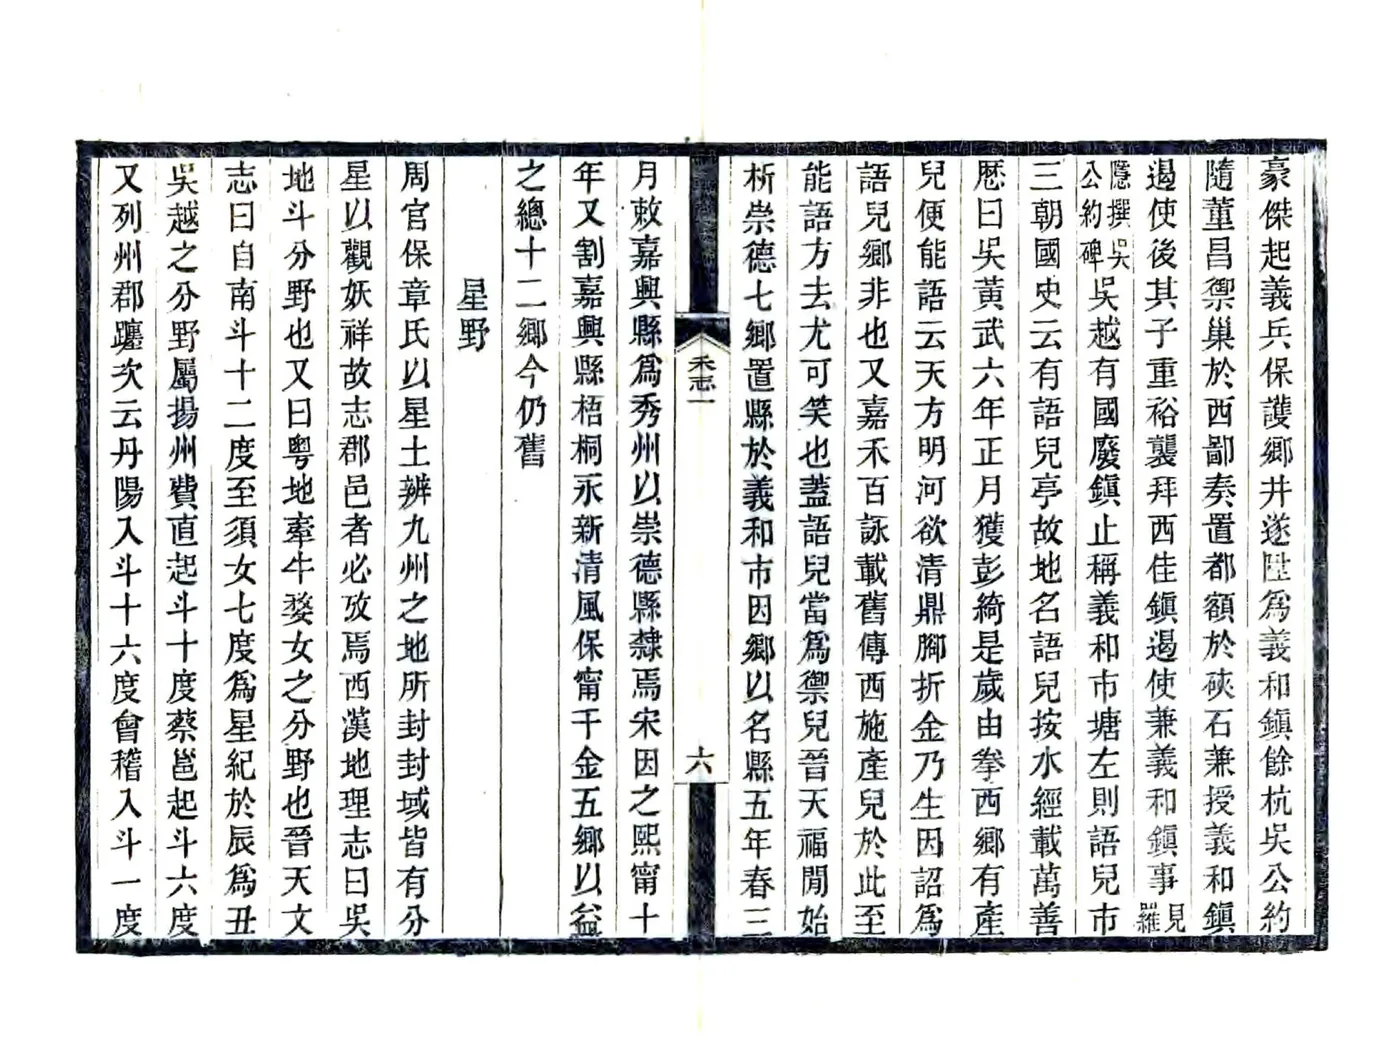 豪傑起義兵保護鄉井遂陞爲義和鎮餘杭吳公約
隨董昌禦巢於西鄙奏置都額於硤石兼授義和鎮
遏使後其子重裕襲拜西佳鎮遏使兼義和鎮事見羅
隱撰吳公約碑吳越有國廢鎮止稱義和市塘左則語兒市
三朝國史云有語兒亭故地名語兒按水經載萬善
厯曰吳黃武六年正月獲彭綺是歲由拳西鄉有產
兒便能語云天方明河欲清鼎腳折金乃生因詔爲
語兒鄉非也又嘉禾百詠載舊傳西施產兒於此至
能語方去尤可笑也蓋語兒當爲禦兒晉天福閒始
析崇德七鄉置縣於義和市因鄉以名縣五年春三
禾志一
六
月敕嘉興縣爲秀州以崇德縣隸焉宋因之熙甯十
年又割嘉興縣梧桐永新清風保甯千金五鄉以益
之總十二鄉今仍舊
星野
周官保章氏以星土辨九州之地所封封域皆有分
星以觀妖祥故志郡邑者必攷焉西漢地理志曰吳
地斗分野也又曰粵地牽牛婺女之分野也晉天文
志曰自南斗十二度至須女七度爲星紀於辰爲丑
吳越之分野屬揚州費直起斗十度蔡邕起斗六度
又列州郡躔次云丹陽入斗十六度會稽入斗一度